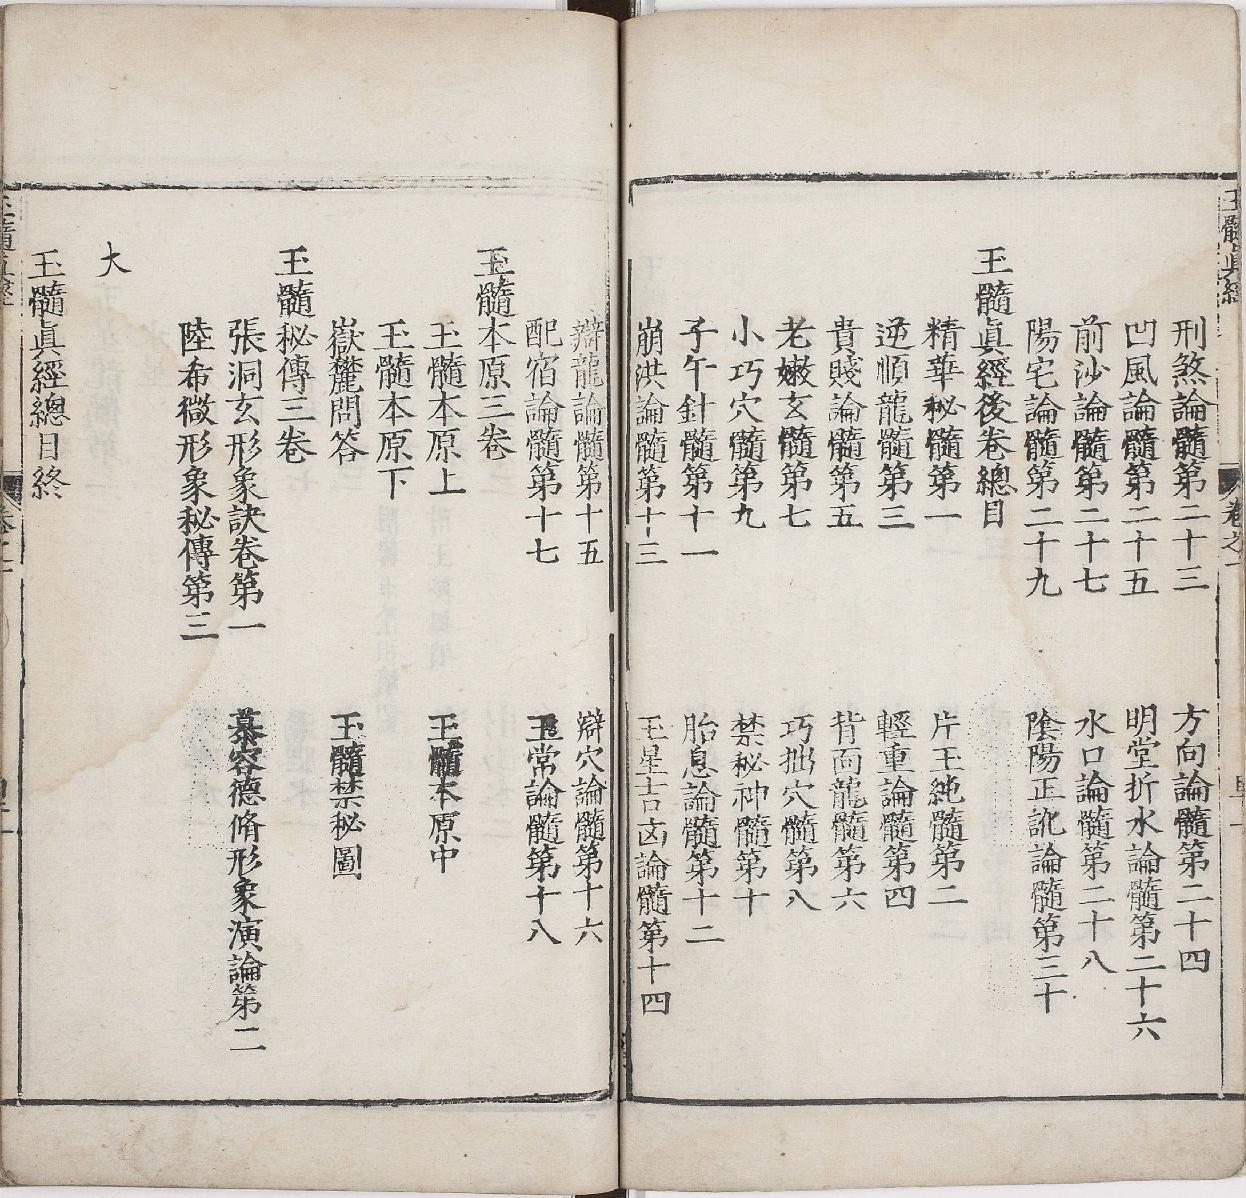 刑煞論髓第二十三　方向論髓第二十四
凹風論髓第二十五　明堂折水論髓第二十六
前沙論髓第二十七　水口論髓第二十八
陽宅論髓第二十九　陰陽正訛論髓第三十
玉髓眞經後卷總目
精華秘髓第一　片玉純髓第二
逆順龍髓第三　輕重論髓第四
貴賤論髓第五　背面龍髓第六
老嫩玄髓第七　巧拙穴髓第八
小巧穴髓第九　禁秘神髓第十
子午針髓第十一　胎息論髓第十二
崩洪論髓第十三　玉星吉凶論髓第十四
辯龍論髓第十五　辯穴論髓第十六
配宿論髓第十七　玉常論髓第十八
玉髓本原三卷
玉髓本原上　玉髓本原中
玉髓本原下
嶽麓問答　玉髓禁秘圖
玉髓秘傳三卷
張洞玄形象訣卷第一　慕容德脩形象演論第二
陸希微形象秘傳第三
大
玉髓眞經總目終
玉髓眞經